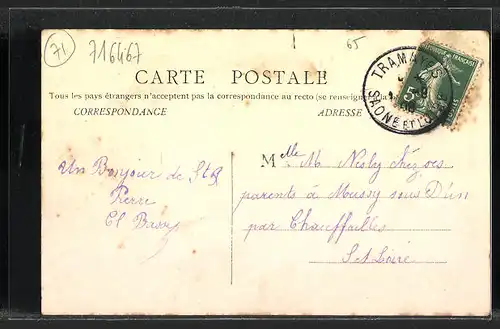 71
716467
65
CARTE POSTALE
Tous les pays étrangers n'acceptent pas la correspondance au recto (se renseigner à la
CORRESPONDANCE
ADRESSE
TRAMAYES
SAONE ET LOIRE
5
Un Bonjour de St
Pierre
Cl
Melle M chez ses
parents à Mussy sous Dun
par Chauffailles
S et Loire